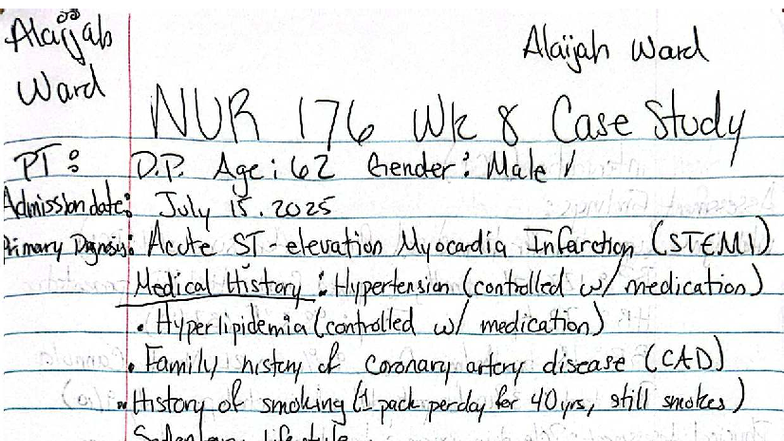 Alaijah Ward
Alaijah Ward
NUR 176 Wk 8 Case Study
PT: D.P. Age: 62 Gender: Male
Admission date: July 15. 2025
Primary Dignosis: Acute ST-elevation Myocardia Infarction (STEMI)
Medical History: Hypertension (controlled w/ medication)
• Hyperlipidemia (controlled w/ medication)
• Family history of coronary artery disease (CAD)
• History of smoking (1 pack per day for 40 yrs, still smokes)
Sedentary lifestyle